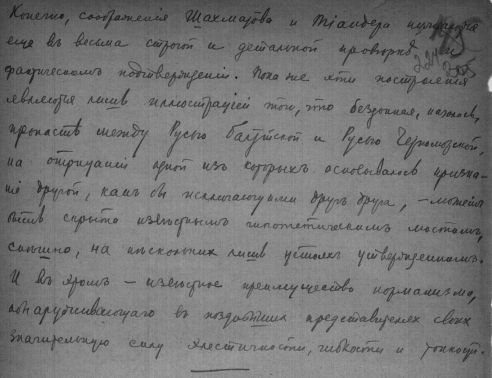 Конечно, соображенія Шахматова и Тіандера нуждаются
еще въ весьма строгой и детальной провѣркѣ и
фактическомъ подтвержденіи. Пока же эти построенія
являются лишь иллюстраціей того, что бездонная, казалось,
пропасть между Русью Балтійской и Русью Черноморской,
на отрицаніи одной изъ которыхъ основывалось призна-
ніе другой, какъ бы исключающими другъ друга, – можетъ
быть скрыта изящнымъ гипотетическимъ мостомъ,
на нѣсколькихъ лишь устояхъ утвержденнымъ.
И въ этомъ – извѣстное преимущество норманизма,
обнаруживающаго въ позднѣйшихъ представителяхъ своихъ
значительную силу эластичности, гибкости и тонкости.